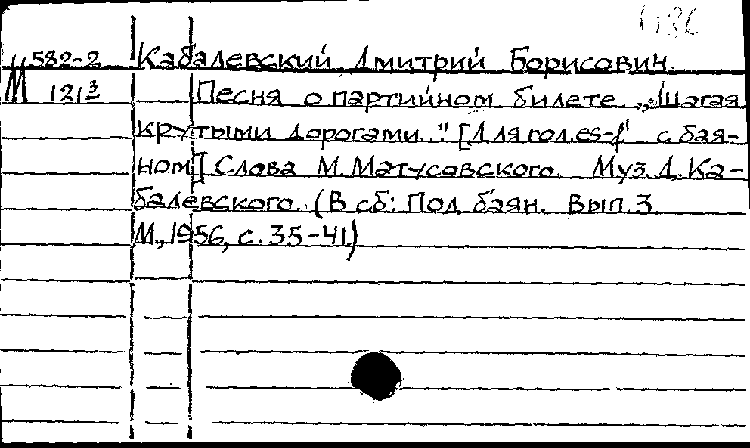 М 582-2 Кабалевский Дмитрий Борисович.
121³ Песня о партийном билете „Шагая
крутыми дорогами." [Для гол. es-f" с бая-
ном] Слова М. Матусовского. Муз. Д. Ка-
балевского. (В сб: Под баян. Вып. 3
М., 1956, с. 35-41)